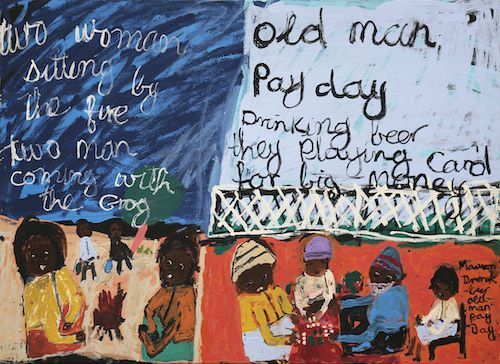 two woman
sitting by
the fire
two man
coming with
the Grog
old man,
Pay day
Drinking beer
they playing Card
for big money
beer
old-
man
pay
Day